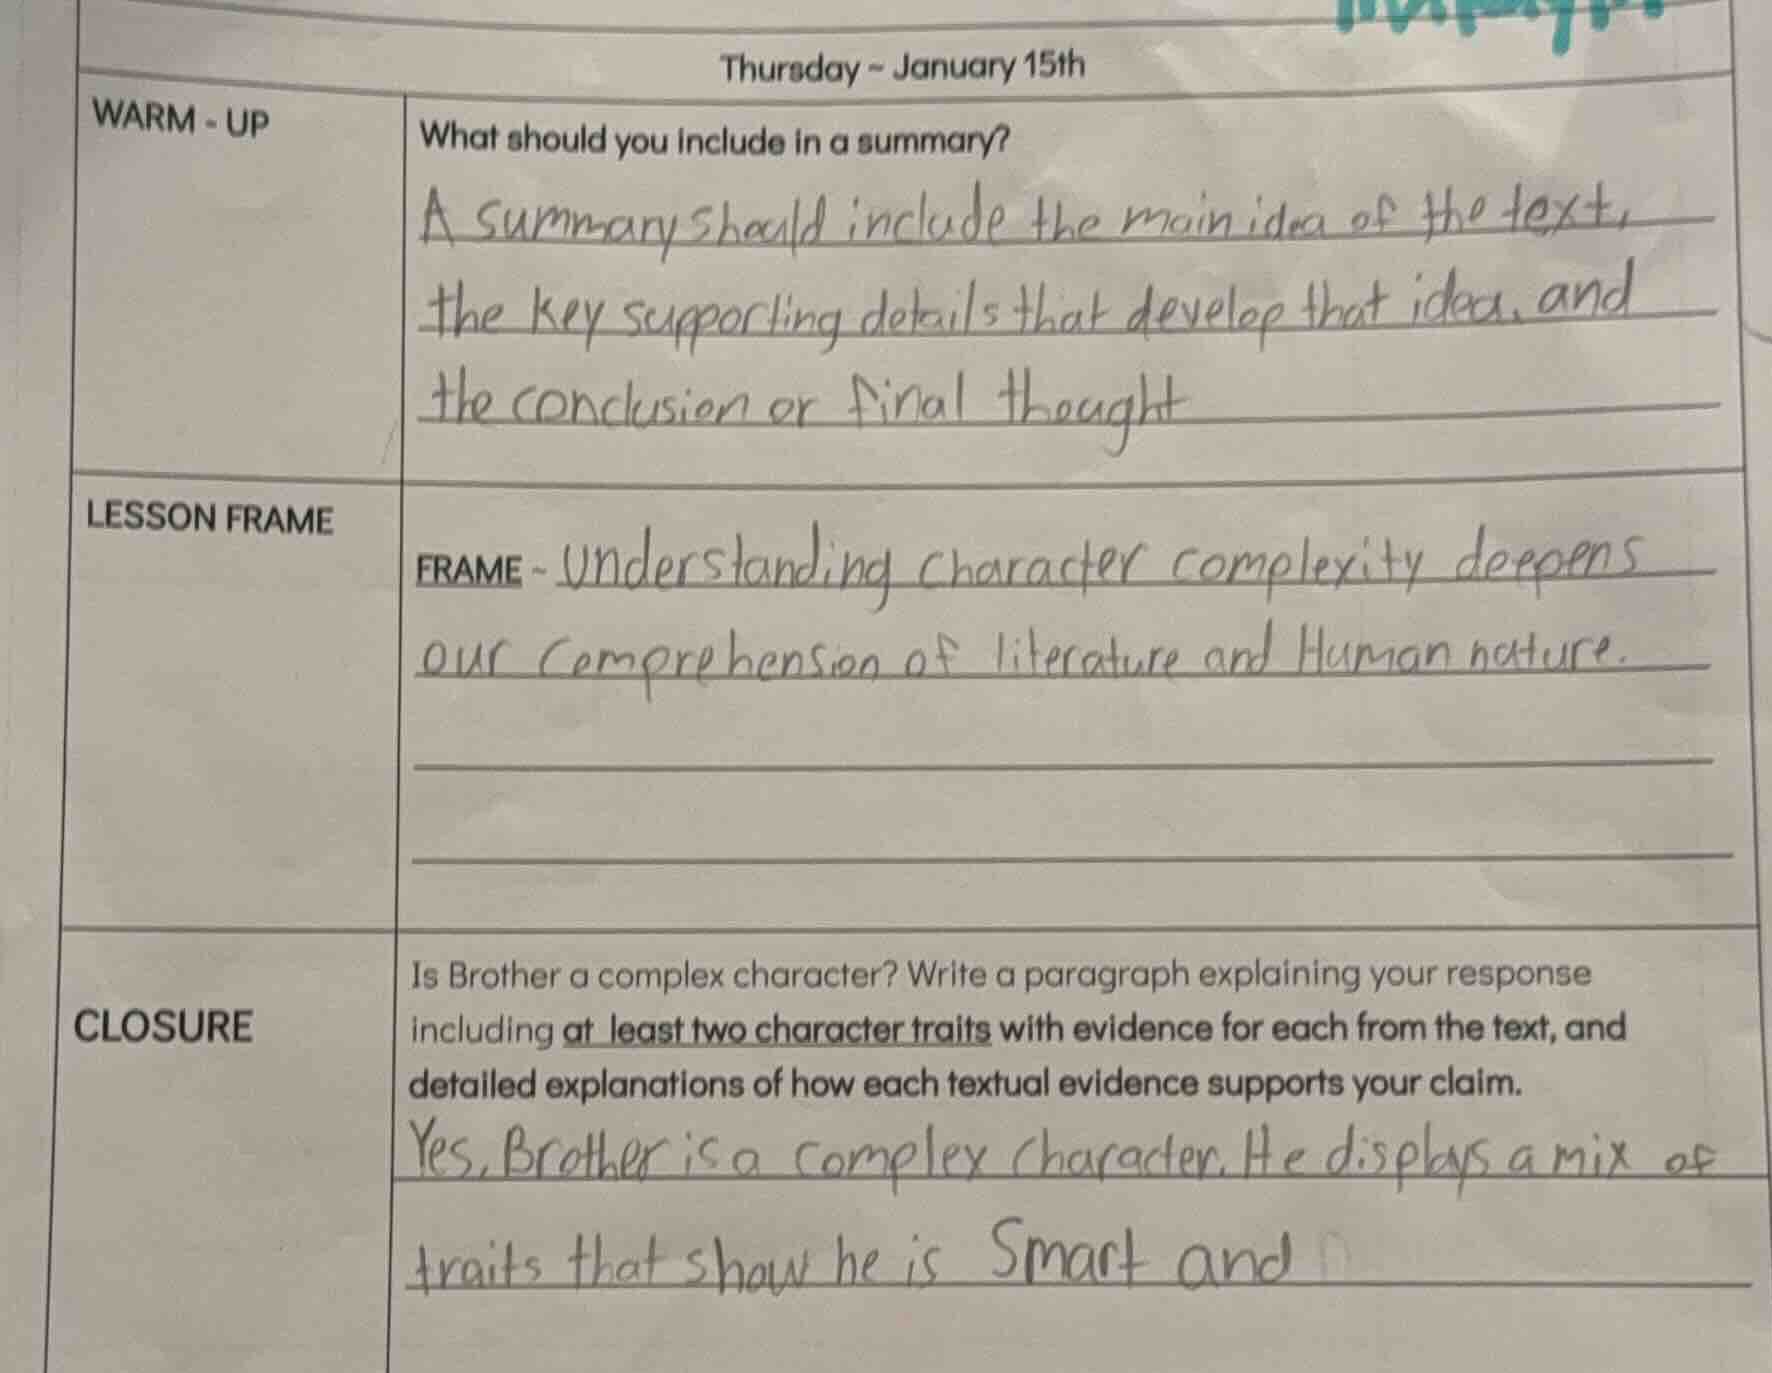 Thursday ~ January 15th
WARM - UP
What should you include in a summary?
A summary should include the main idea of the text,
the key supporting details that develop that idea, and
the conclusion or final thought
LESSON FRAME
FRAME ~ Understanding character complexity deepens
our comprehension of literature and Human nature.
CLOSURE
Is Brother a complex character? Write a paragraph explaining your response
including at least two character traits with evidence for each from the text, and
detailed explanations of how each textual evidence supports your claim.
Yes, Brother is a complex character. He displays a mix of
traits that show he is Smart and